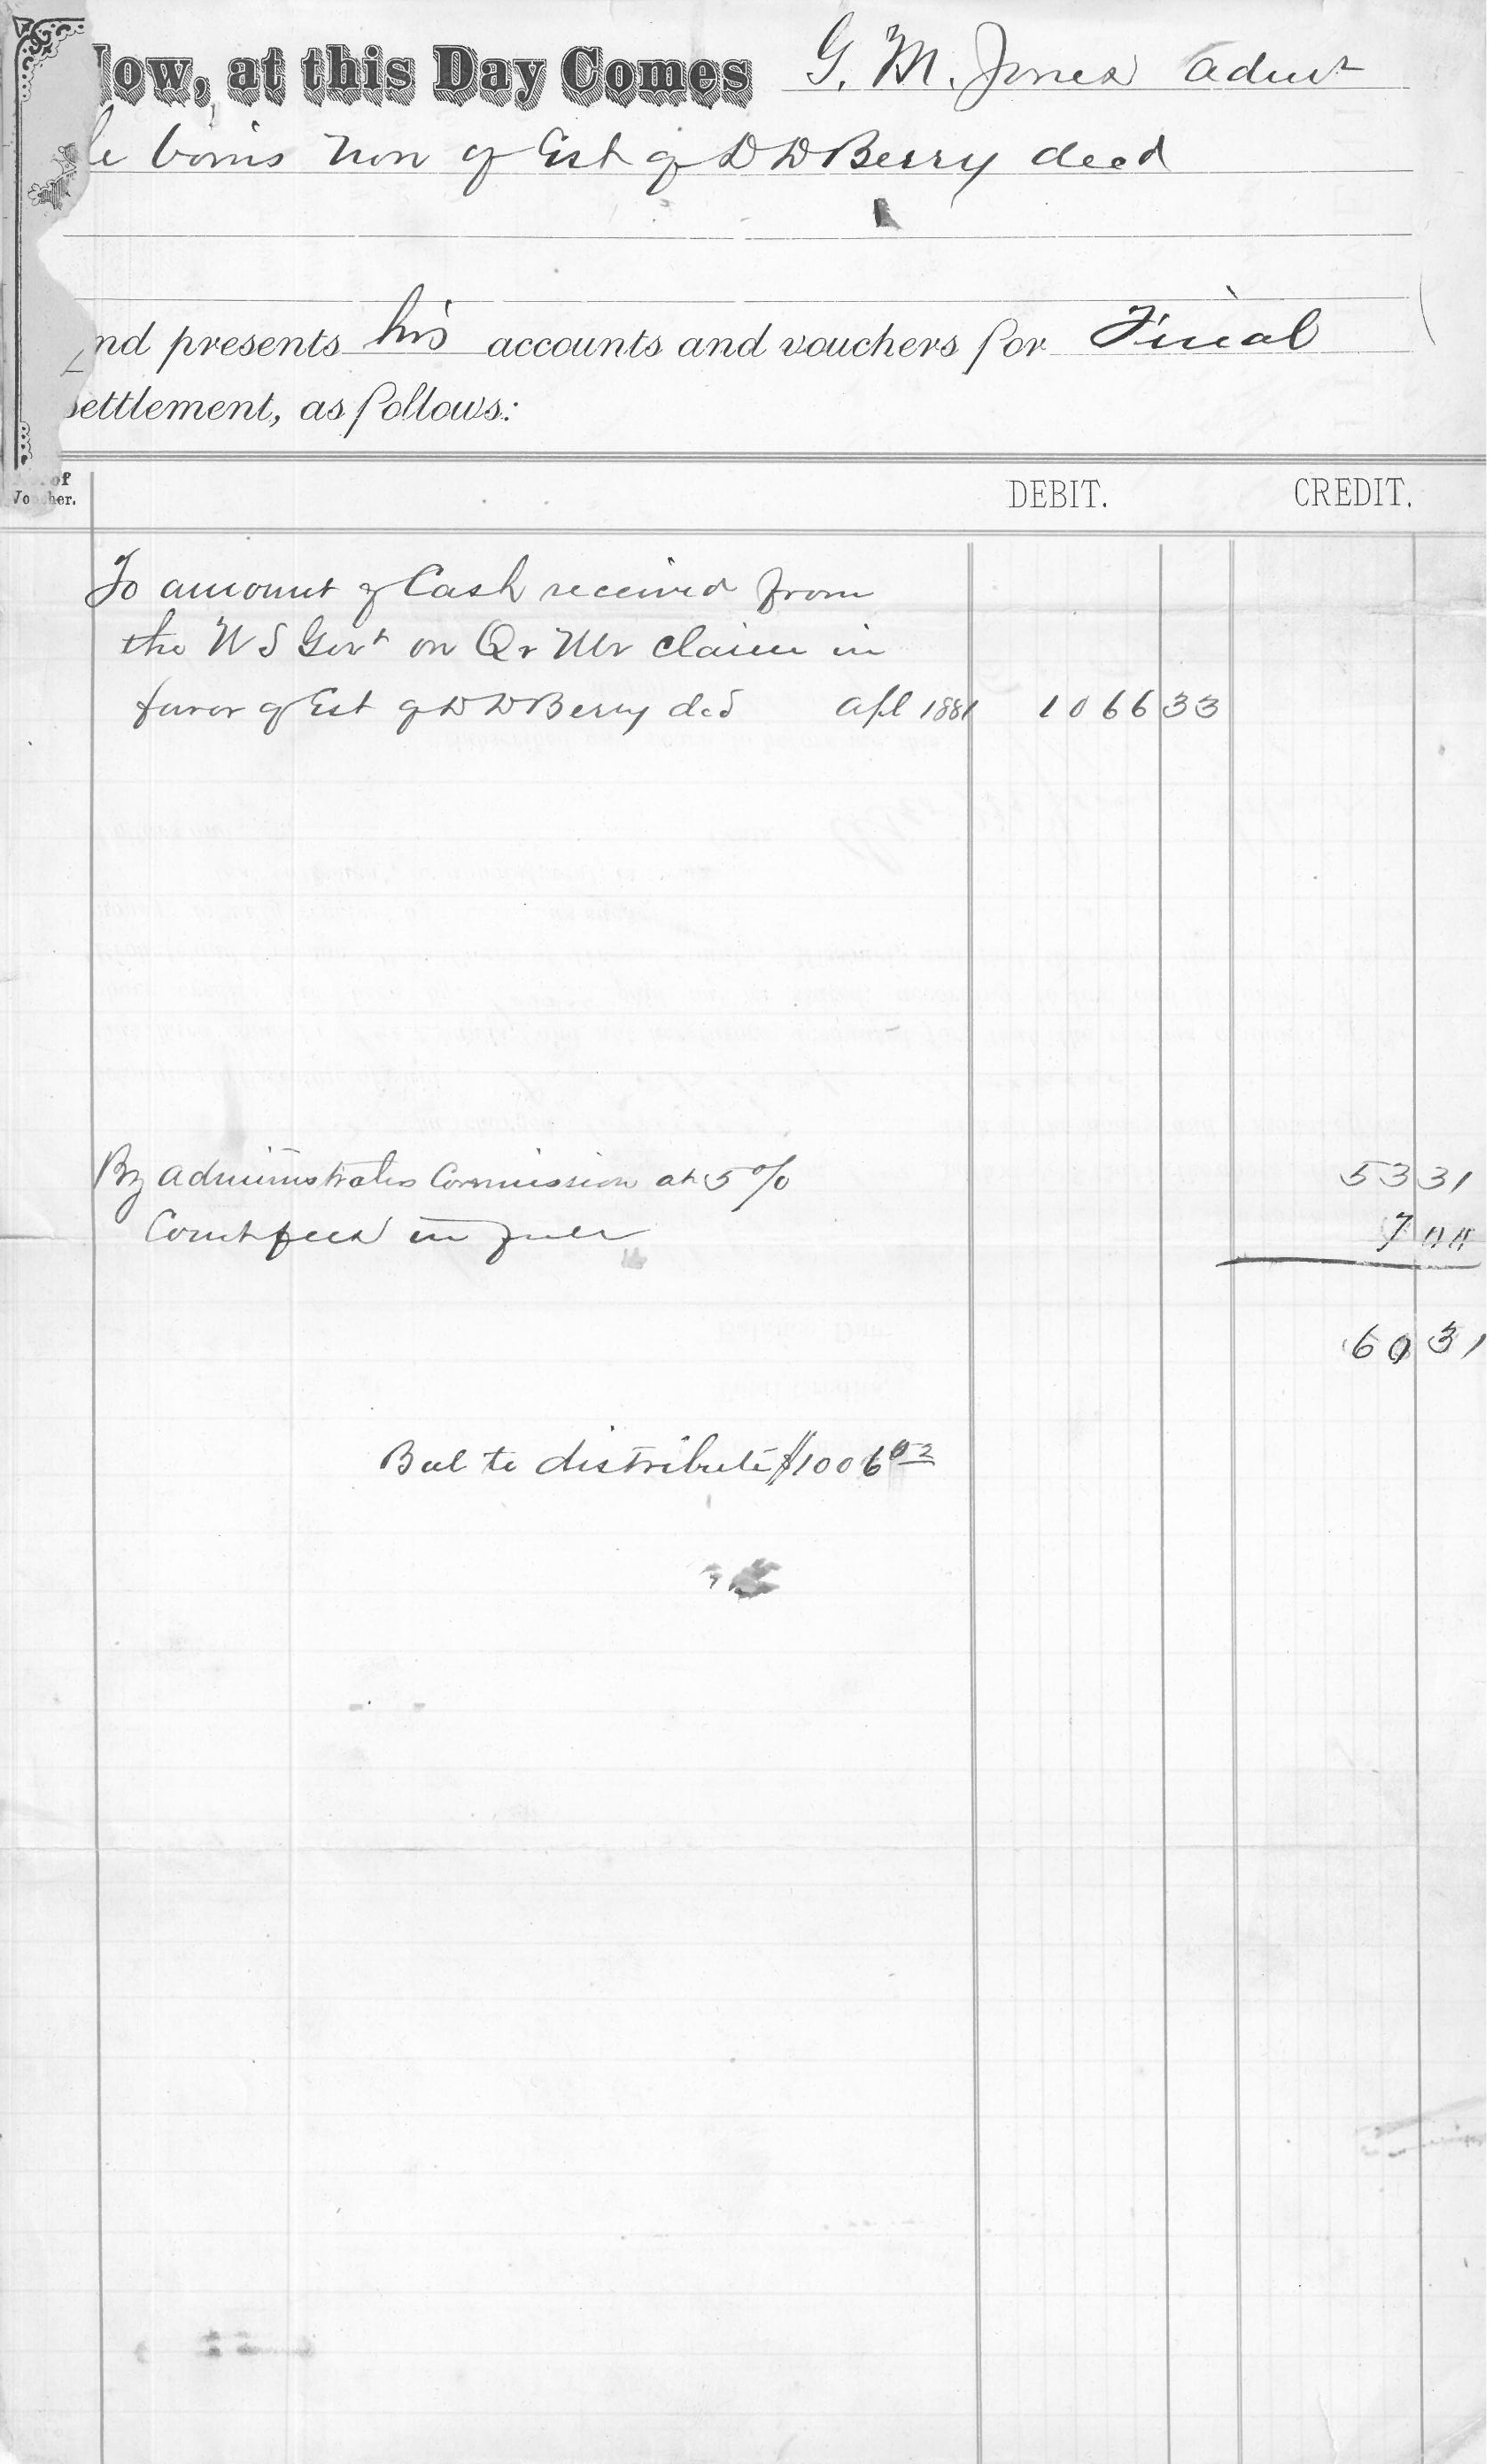 Now, at this Day Comes G. M. Jones Admr
de bonis non of Est of D D Berry decd
and presents his accounts and vouchers for Final
Settlement, as follows:
No. of
Voucher.
DEBIT. CREDIT.
To amount of Cash received from
the U S Govt on Qr Mr claim in
favor of Est of D D Berry decd Apl 1881 1066 33
By Administrators Commission at 5% 53 31
Court fees in full 7 00
60 31
Bal to distribute $1006 02